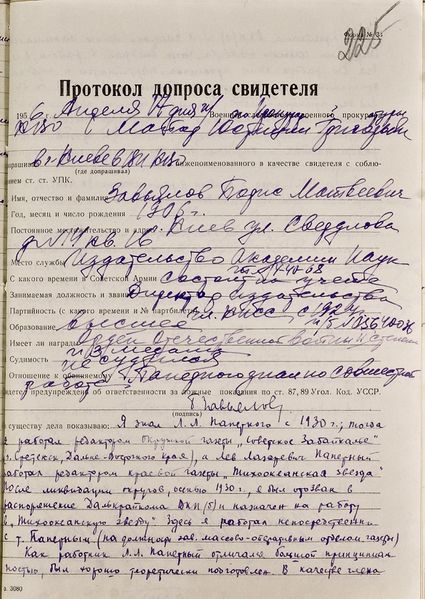 Форма № 33
225
Протокол допроса свидетеля
1956 Апреля 17 дня Военн прокур военного прокуратуры
КВО Майор юстиции
допрашив в г. Киеве в ВП КВО нижепоименованного в качестве свидетеля с соблю-
(где допрашивал)
ением ст. ст. УПК.
Имя, отчество и фамилия Завьялов Борис Матвеевич
Год, месяц и число рождения 1906 г.
Постоянное местожительство и адрес г. Киев ул. Свердлова
д. № 19 кв. 16
Место службы Издательство Академии Наук
С какого времени в Советской Армии состоит на учете
Занимаемая должность и звание Директор издательства
Партийность (с какого времени и № партбилета) чл. КПСС с 192
Образование высшее
Имеет ли награды Орден Отечественной Войны II степени
и 3 медали
Судимость не судился
Отношение к обвиняемому Паперного знал по совместной
работе
будет предупрежден об ответственности за ложные показания по ст. 87, 89 Угол. Код. УССР.
Б. Завьялов
(подпись)
существу дела показываю: Я знал Л.Л. Паперного с 1930 г.; тогда
я работал редактором окружной газеты „Советское Забайкалье"
(г. Сретенск, Дальне-Восточного края), а Лев Лазаревич Паперный
работал редактором краевой газеты „Тихоокеанская звезда"
После ликвидации округов, осенью 1930 г., я был отозван в
распоряжение Далькрайкома ВКП(б) и назначен на работу
в „Тихоокеанскую звезду". Здесь я работал непосредственно
с т. Паперным (на должности зав. массово-оперативным отделом газеты)
Как работник Л.Л. Паперный отличался большой принципиаль-
ностью, был хорошо теоретически подготовлен. В качестве члена
з. 3080